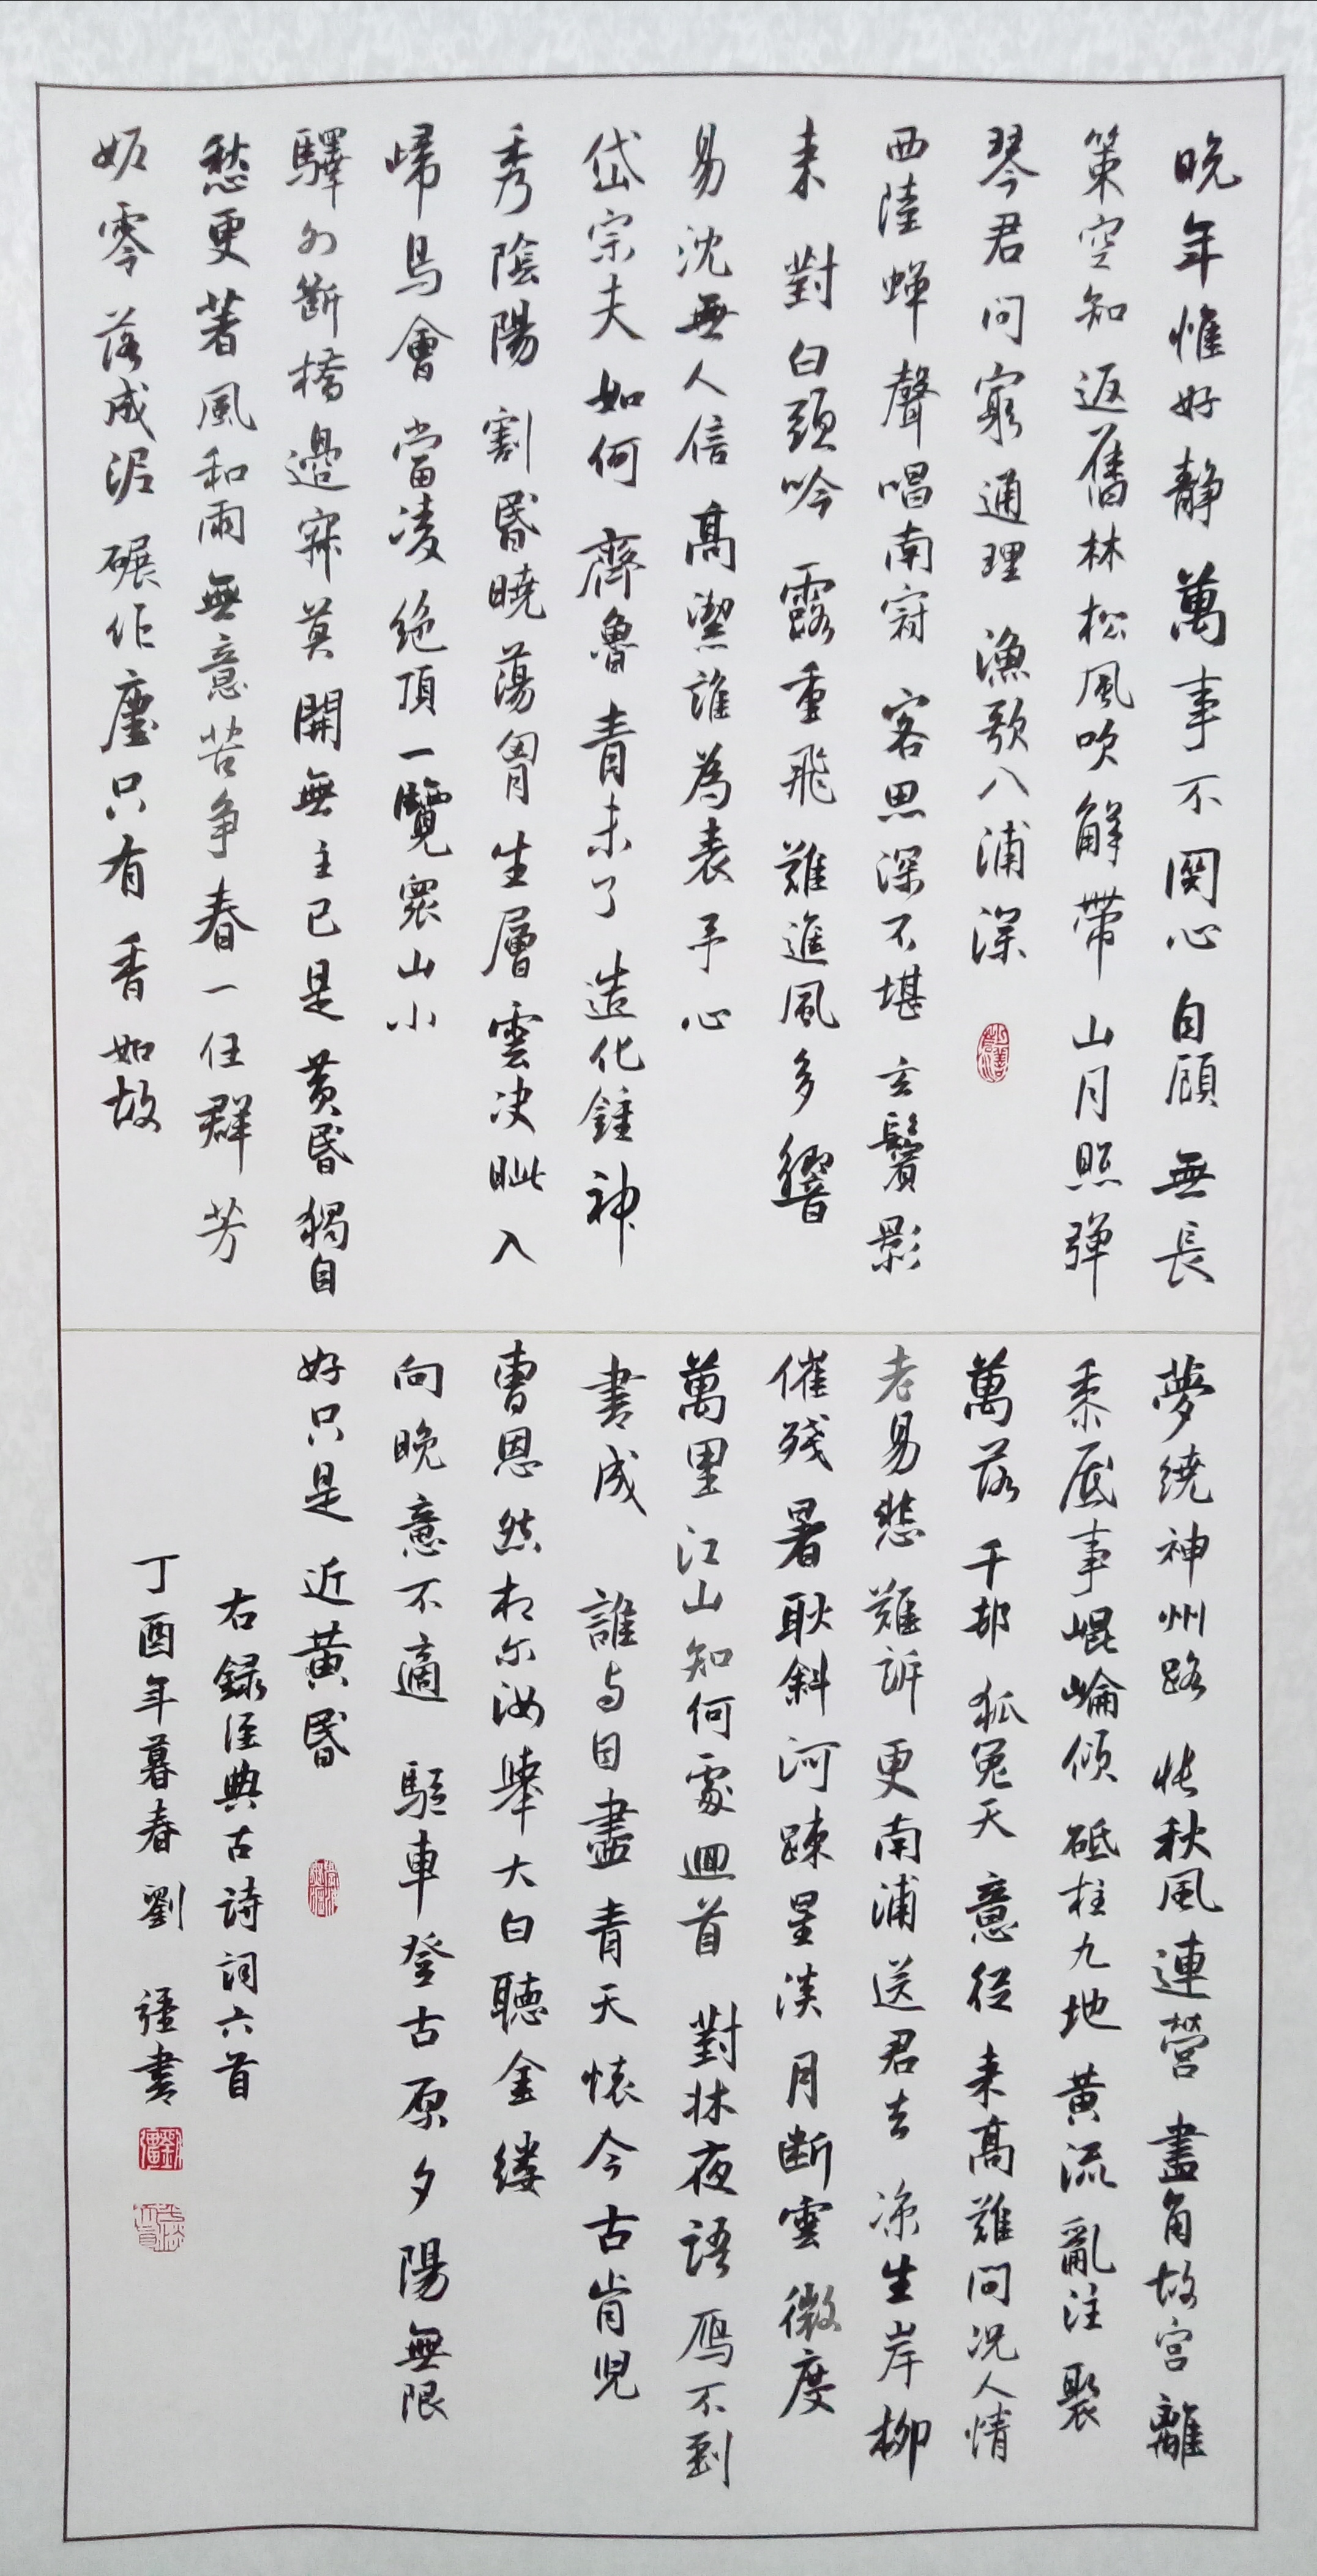 晚年惟好静萬事不関心自顧無長
策空知返舊林松風吹解帶山月照弹
琴君问窮通理漁歌入浦深
西陸蝉聲唱南冠客思深不堪玄鬢影
来對白頭吟露重飛難進風多響
易沈無人信高潔誰為表予心
岱宗夫如何齊魯青未了造化鍾神
秀陰陽割昏曉蕩胷生層雲决眦入
歸鳥會當凌绝頂一覽衆山小
驛外斷橋邊寂莫開無主已是黄昏獨自
愁更著風和雨無意苦争春一任群芳
妬零落成泥碾作塵只有香如故
夢繞神州路悵秋風連營畫角故宫離
黍底事崐崘傾砥柱九地黄流亂注聚
萬落千邨狐兔天意從来高難问况人情
老易悲難訴更南浦送君去凉生岸柳
催残暑耿斜河疎星淡月断雲微度
萬里江山知何處迴首對牀夜語雁不到
書成誰与目盡青天懷今古肯兒
曹恩怨相尔汝舉大白聽金缕
向晚意不適驅車登古原夕陽無限
好只是近黄昏
右録经典古詩詞六首
丁酉年暮春劉 書